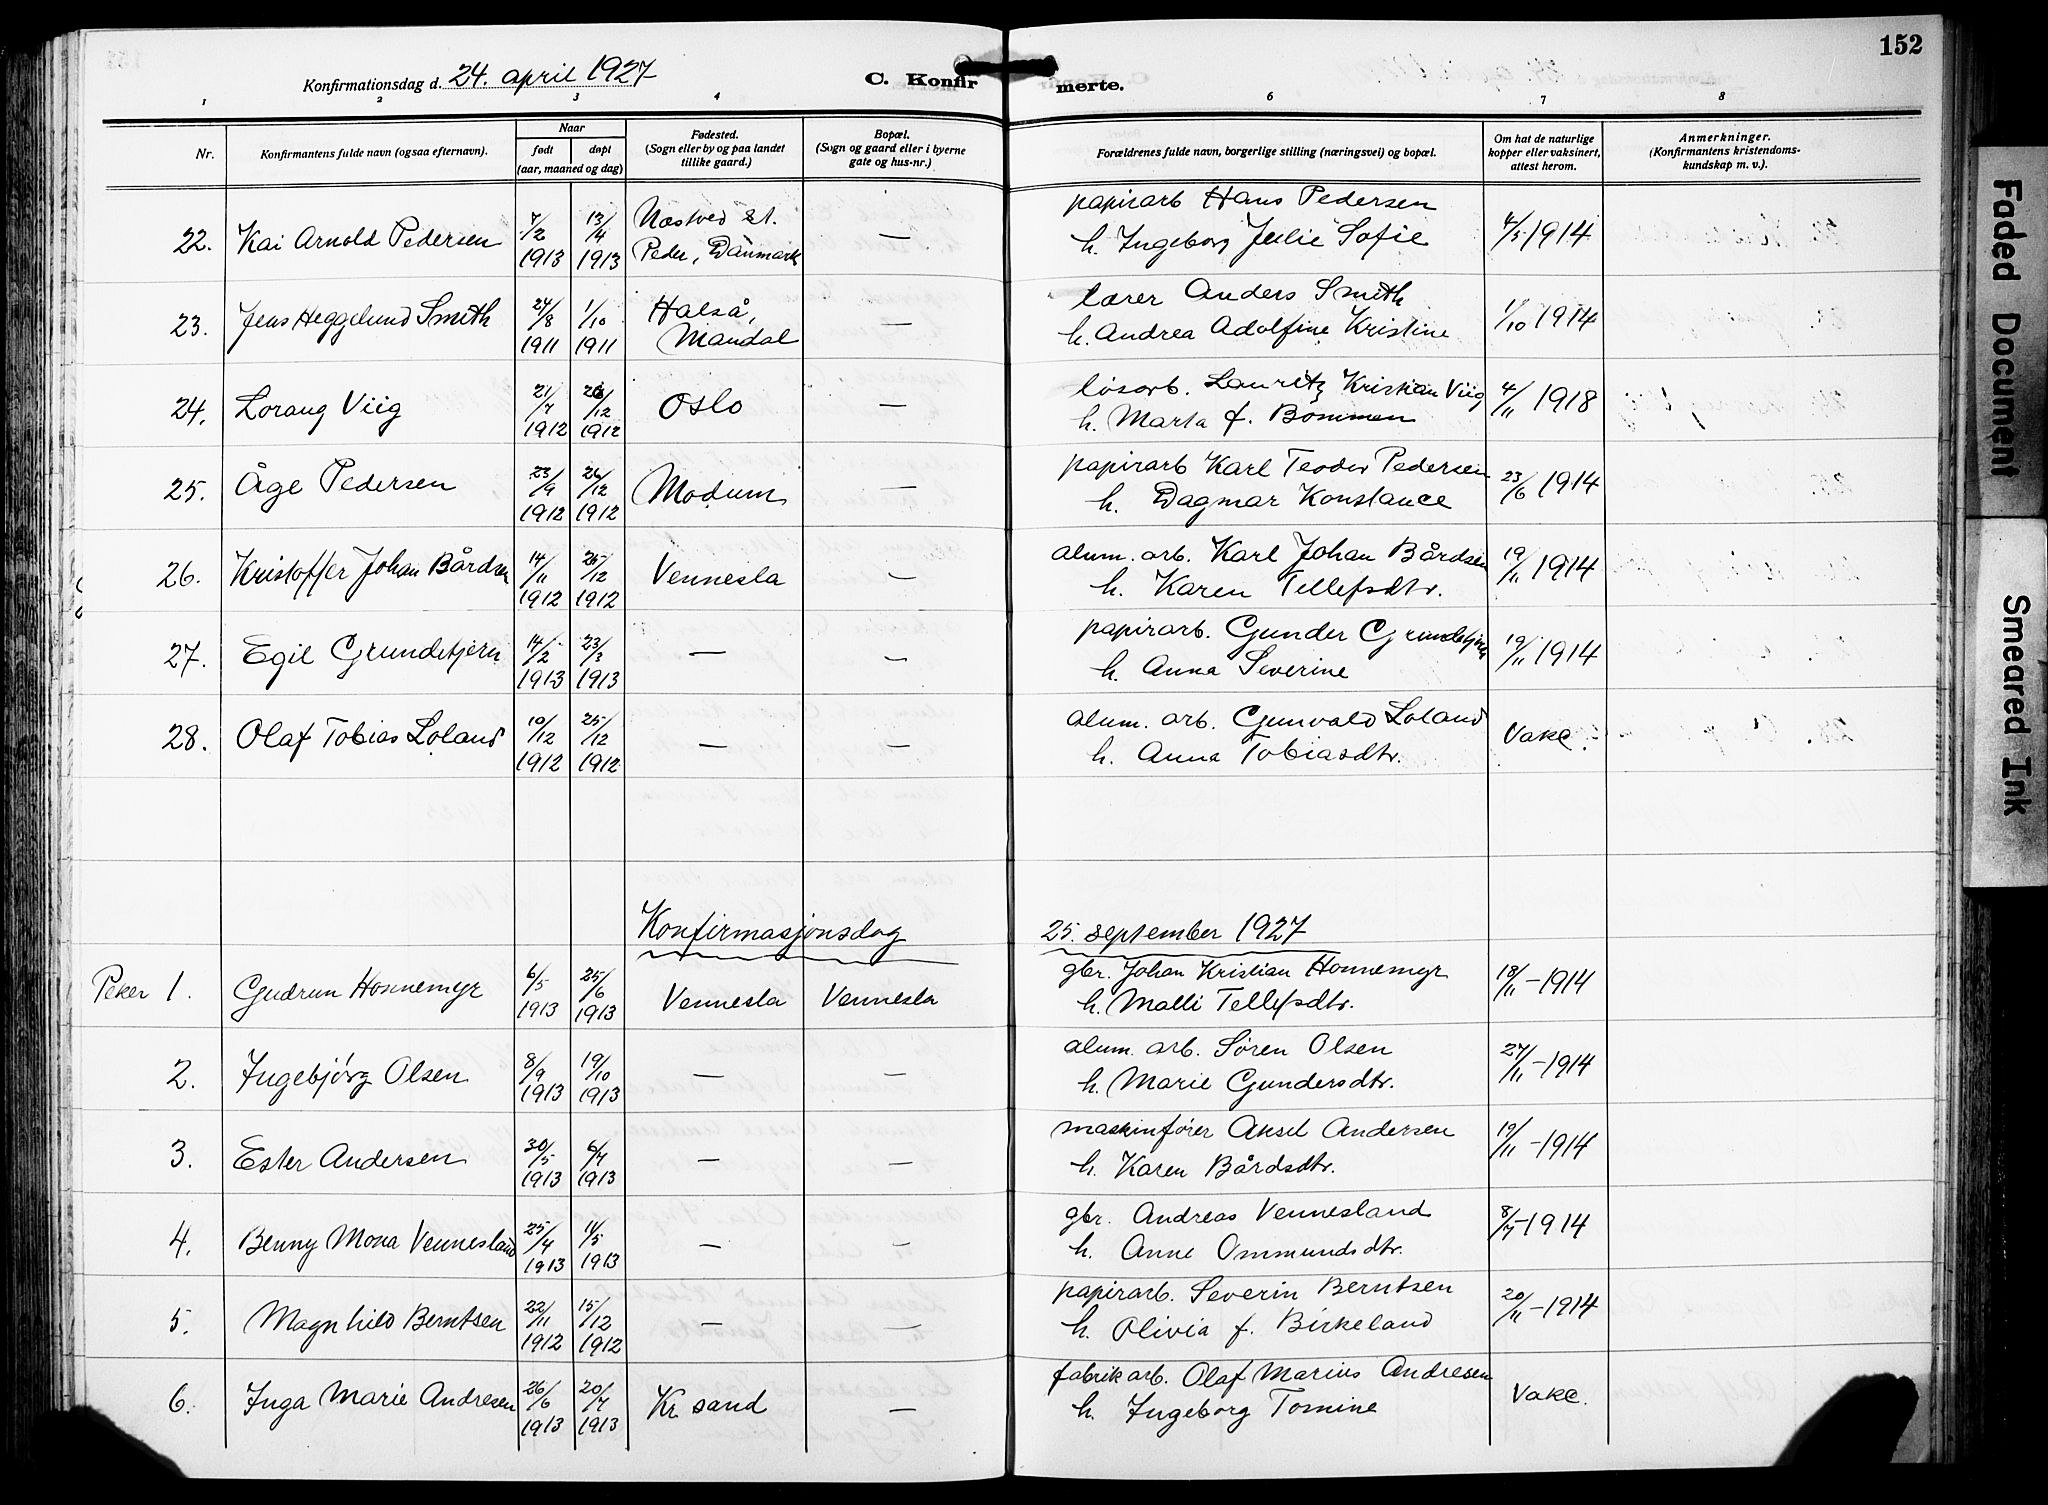 152
Konfirmationsdag d. 24. april 1927 C. Konfirmerte.
1 2 3 4 6 7 8
Nr. Konfirmantens fulde navn (ogsaa efternavn). Naar født døpt (aar, maaned og dag) Fødested. (Sogn eller by og paa landet tillike gaard.) Bopæl. (Sogn og gaard eller i byerne gate og hus-nr.) Forældrenes fulde navn, borgerlige stilling (næringsvei) og bopæl. Om hat de naturlige kopper eller vaksinert, attest herom. Anmerkninger. (Konfirmantens kristendoms-kundskap m. v.).
22. Kai Arnold Pedersen 7/2 1913 13/4 1913 Næstved St. Peder, Danmark — papirarb Hans Pedersen h. Ingeborg Julie Sofie 4/5 1914
23. Jens Heggelund Smith 24/8 1911 1/10 1911 Halså, Mandal — lærer Anders Smith h. Andrea Adolfine Kristine 1/10 1914
24. Lorang Viig 21/7 1912 26/12 1912 Oslo — løsarb. Lauritz Kristian Viig h. Marta f. Bommen 4/11 1918
25. Åge Pedersen 23/9 1912 26/12 1912 Modum — papirarb Karl Teodor Pedersen h. Dagmar Konstance 23/6 1914
26. Kristoffer Johan Bårdsen 14/11 1912 25/12 1912 Vennesla — alum. arb. Karl Johan Bårdsen h. Karen Tellefsdtr. 19/11 1914
27. Egil Grundetjern 14/2 1913 23/3 1913 — — papirarb. Gunder Grundetjern h. Anna Severine 19/11 1914
28. Olaf Tobias Loland 10/12 1912 25/12 1912 — — alum. arb. Gunvald Loland h. Anna Tobiasdtr. Vakc.
Konfirmasjonsdag 25. september 1927
Peker 1. Gudrun Honnemyr 6/5 1913 25/6 1913 Vennesla Vennesla gbr. Johan Kristian Honnemyr h. Malli Tellefsdtr. 18/11 - 1914
2. Ingebjørg Olsen 8/9 1913 19/10 1913 — — alum. arb. Søren Olsen h. Marie Gundersdtr. 27/11 - 1914
3. Ester Andersen 30/5 1913 6/7 1913 — — maskinfører Aksel Andersen h. Karen Bårdsdtr. 19/11 - 1914
4. Benny Mona Vennesland 25/4 1913 11/5 1913 — — gbr. Andreas Vennesland h. Anne Ommundsdtr. 8/7 - 1914
5. Magnhild Berntsen 22/11 1912 15/12 1912 — — papirarb. Severin Berntsen h. Olivia f. Birkeland 20/11 - 1914
6. Inga Marie Andresen 26/6 1913 20/7 1913 Kr sand — fabrikarb. Olaf Marius Andresen h. Ingeborg Tomine Vakc.
Faded Document
Smeared Ink